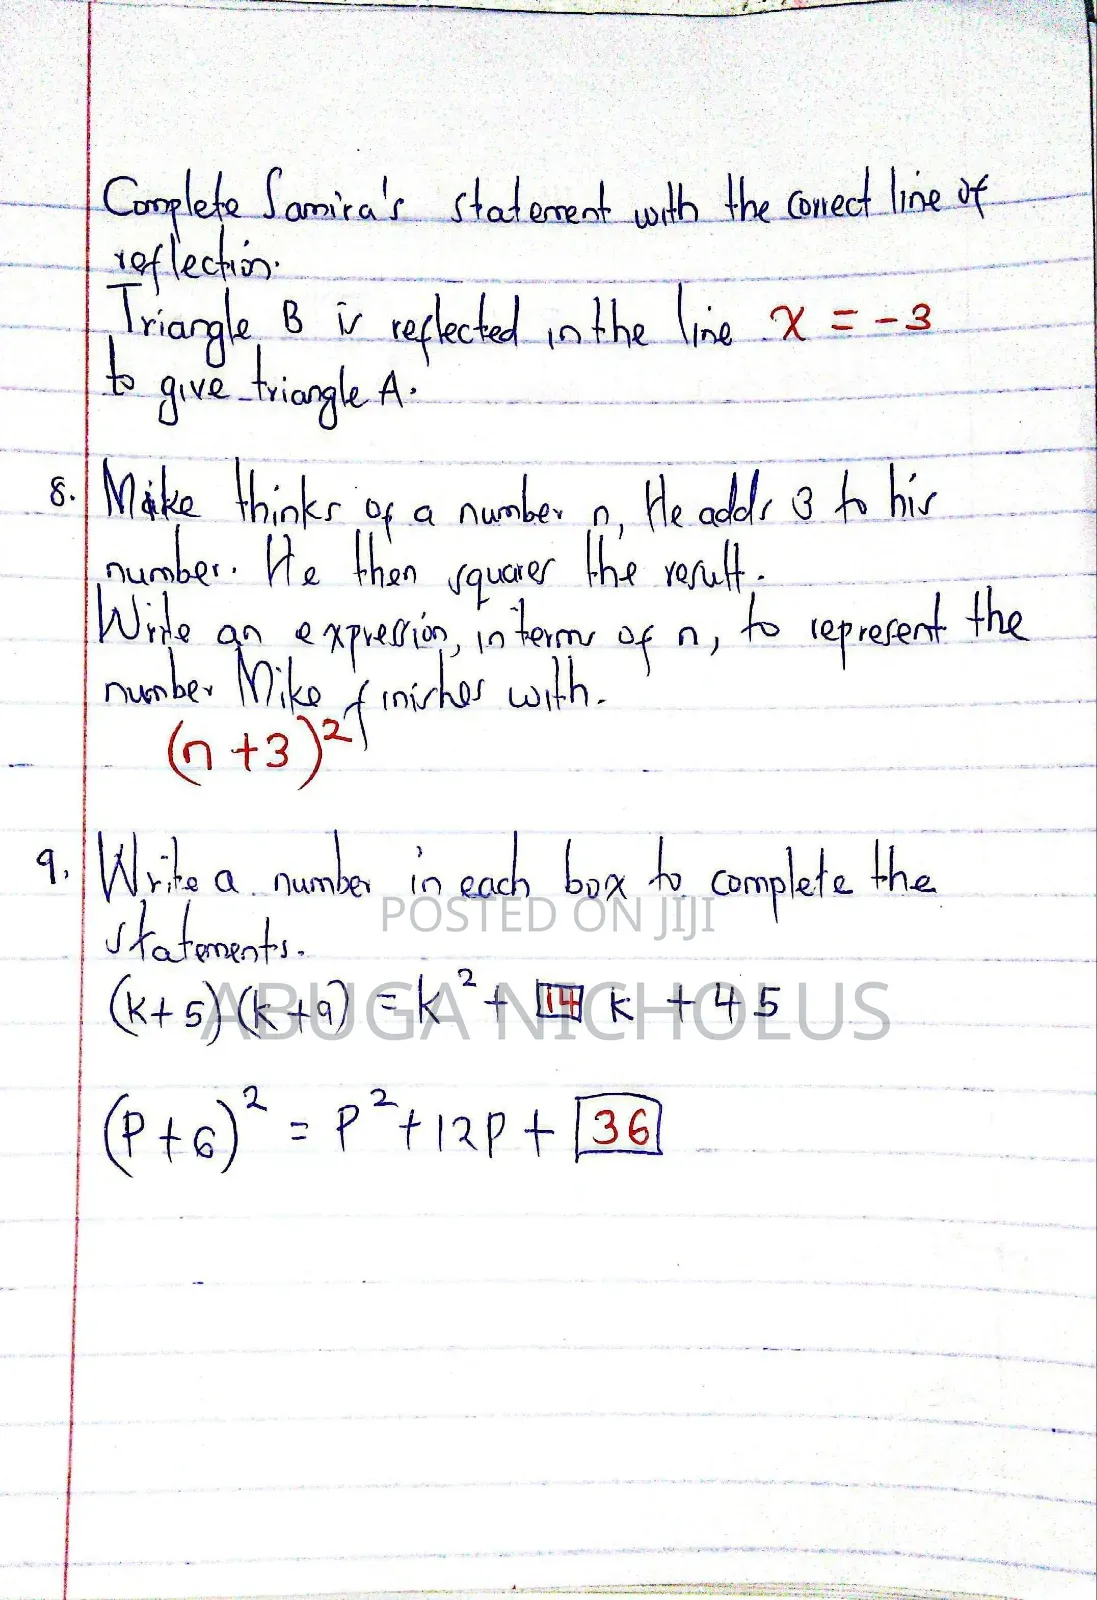 Complete Samira's statement with the correct line of
reflection.
Triangle B is reflected in the line x = -3
to give triangle A.
8. Mike thinks of a number n, He adds 3 to his
number. He then squares the result.
Write an expression, in terms of n, to represent the
number Mike finishes with.
(n+3)²
9. Write a number in each box to complete the
statements.
POSTED ON JIJI
(k+5)(k+9) = k² + 14 k + 45
ABUGA NICHOLUS
(P+6)² = P² + 12P + 36